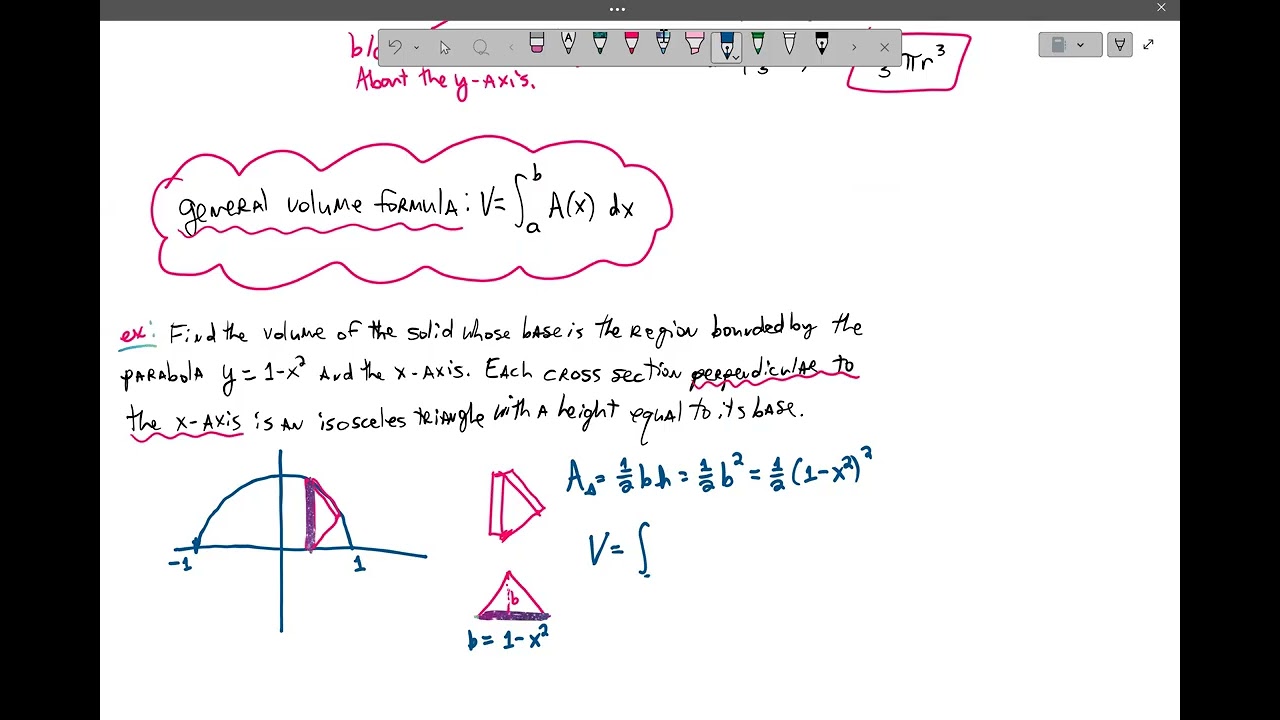 About the y-Axis.
πr³
general volume formula: V= ∫ₐᵇ A(x) dx
ex: Find the volume of the solid whose base is the region bounded by the
parabola y = 1-x² and the x-axis. Each cross section perpendicular to
the x-axis is an isosceles triangle with a height equal to its base.
A△ = 1/2 bh = 1/2 b² = 1/2 (1-x²)²
V= ∫
-1
1
b
b = 1-x²